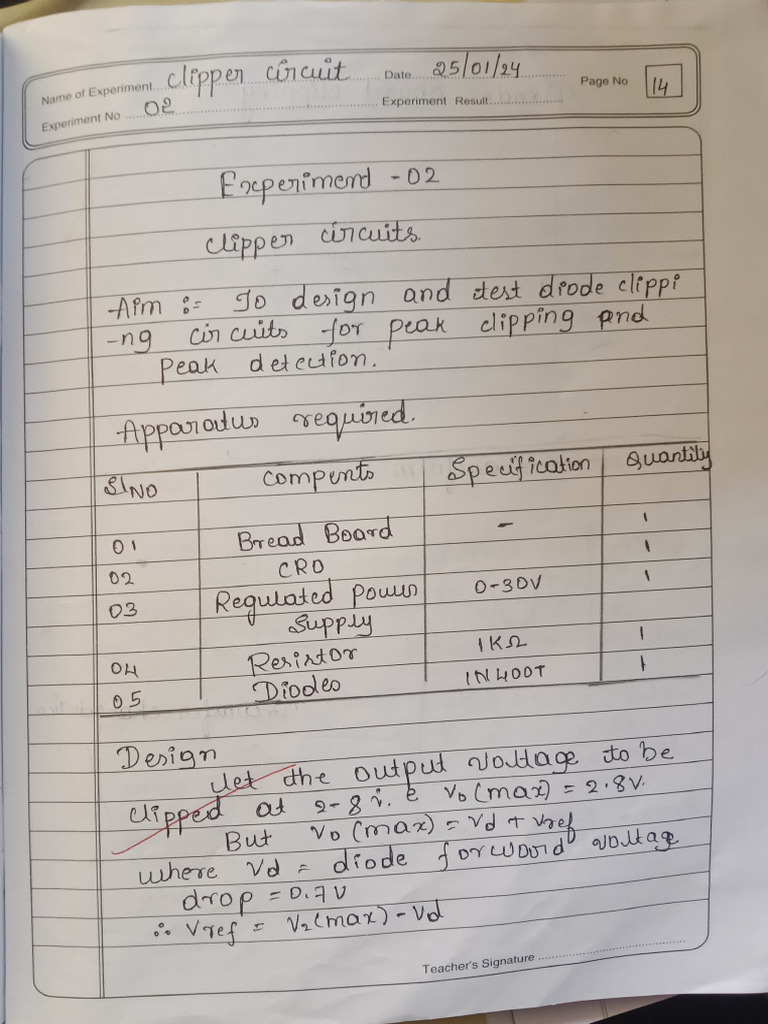 Name of Experiment clipper circuit Date 25/01/24 Page No 14
Experiment No 02 Experiment Result
Experiment - 02
Clipper circuits.
Aim := To design and test diode clippi
-ng circuits for peak clipping and
peak detection.
Apparatus required.
Sl NO Compents Specification Quantity
01 Bread Board - 1
02 CRO 1
03 Regulated power 0-30V 1
Supply
04 Resistor 1KΩ 1
05 Diodes 1N400T 1
Design
Let the output voltage to be
clipped at 2-8 i.e Vo(max) = 2.8V.
But Vo (max) = Vd + Vref
where Vd = diode forword voltage
drop = 0.7V
∴ Vref = V2(max) - Vd
Teacher's Signature